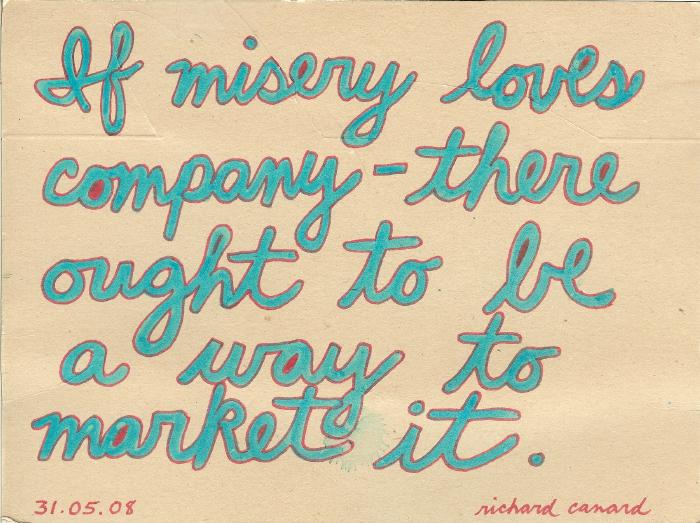 If misery loves
company - there
ought to be
a way to
market it.
31.05.08
richard canard